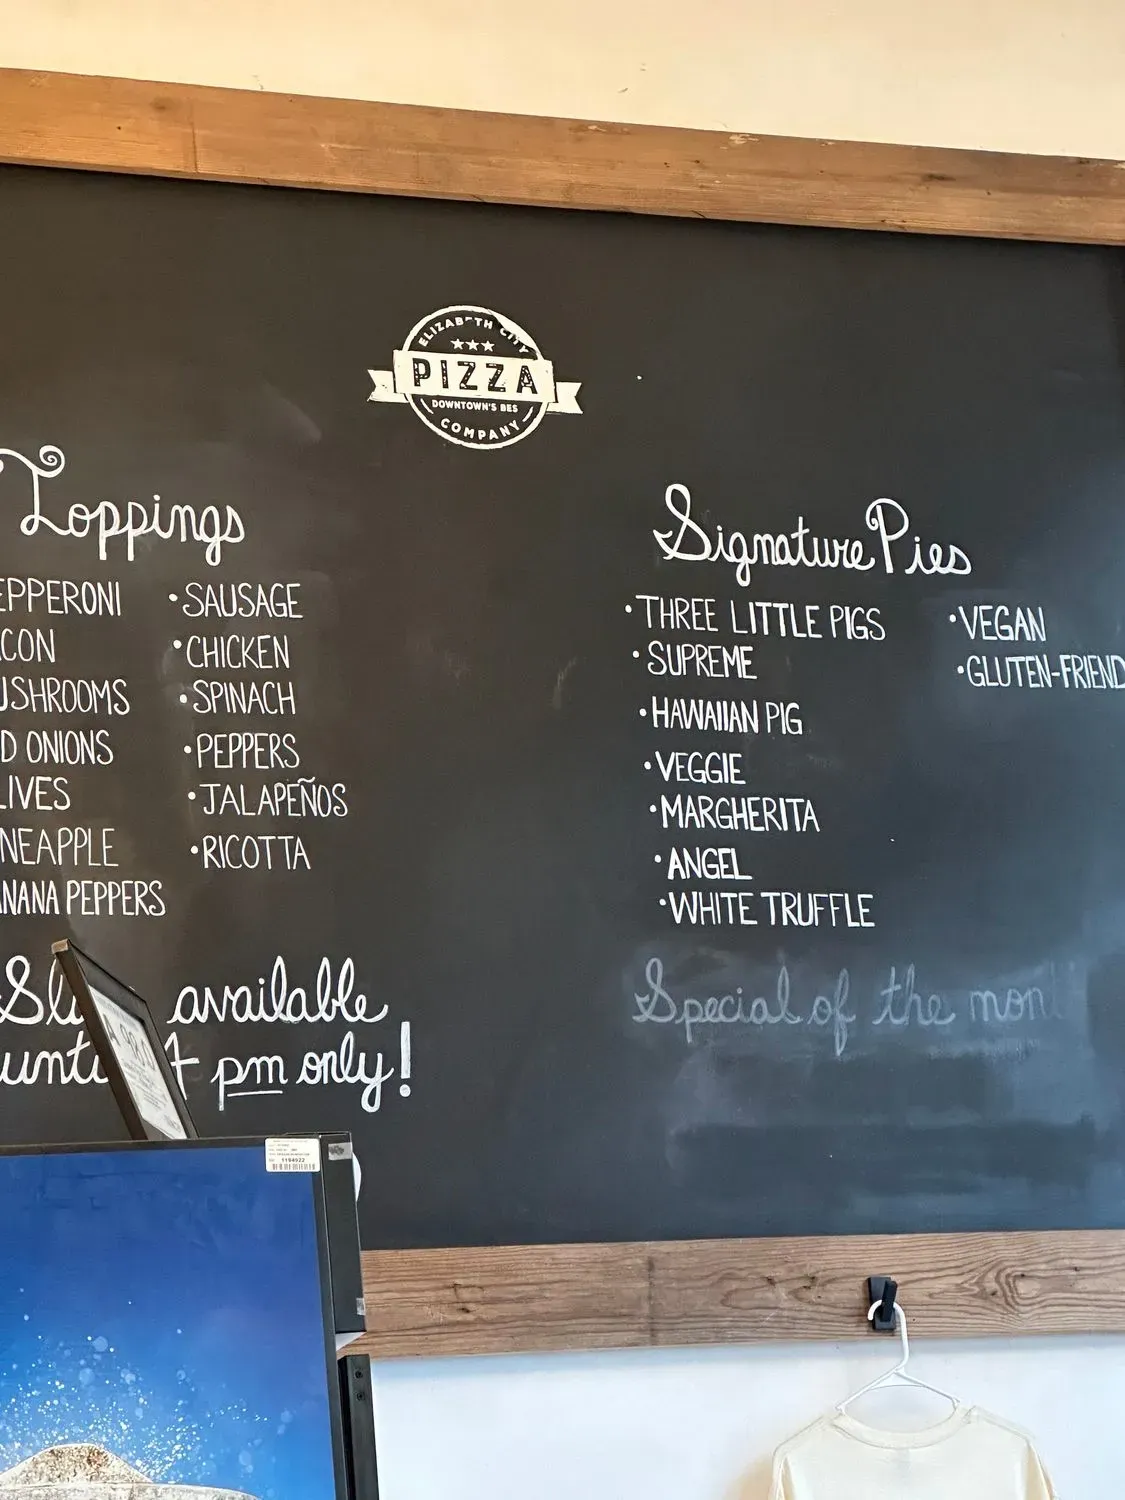 ELIZABETH CITY
PIZZA
DOWNTOWN'S BES
COMPANY
Toppings
EPPERONI
CON
USHROOMS
D ONIONS
LIVES
NEAPPLE
NANA PEPPERS
• SAUSAGE
• CHICKEN
• SPINACH
• PEPPERS
• JALAPEÑOS
• RICOTTA
available
pm only!
Signature Pies
• THREE LITTLE PIGS
• SUPREME
• HAWAIIAN PIG
• VEGGIE
• MARGHERITA
• ANGEL
• WHITE TRUFFLE
• VEGAN
• GLUTEN-FRIEND
Special of the mont
1194922